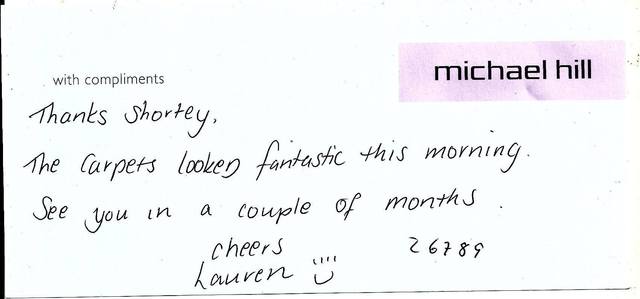 michael hill
with compliments
Thanks Shortey,
The Carpets looked fantastic this morning.
See you in a couple of months.
cheers 26789
Lauren